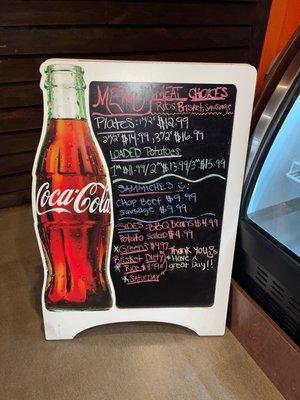 Menu MEAT CHOICES
RIBS, BRISKET, SAUSAGE
PLATES: 1"2" $12.99
2"2" $14.99, 3"2" $16.99
LOADED POTATOES
1" $11.99/ 2" $13.99/3" $15.99
SAMMICHES
CHOP BEEF $9.99
SAUSAGE $9.99
SIDES: BBQ BEANS $4.99
POTATO SALAD $4.99
*GREENS $4.99
BRISKET DIRTY
*RICE
*SATURDAY
Thank You
HAVE A
great DAY!!
Coca-Cola